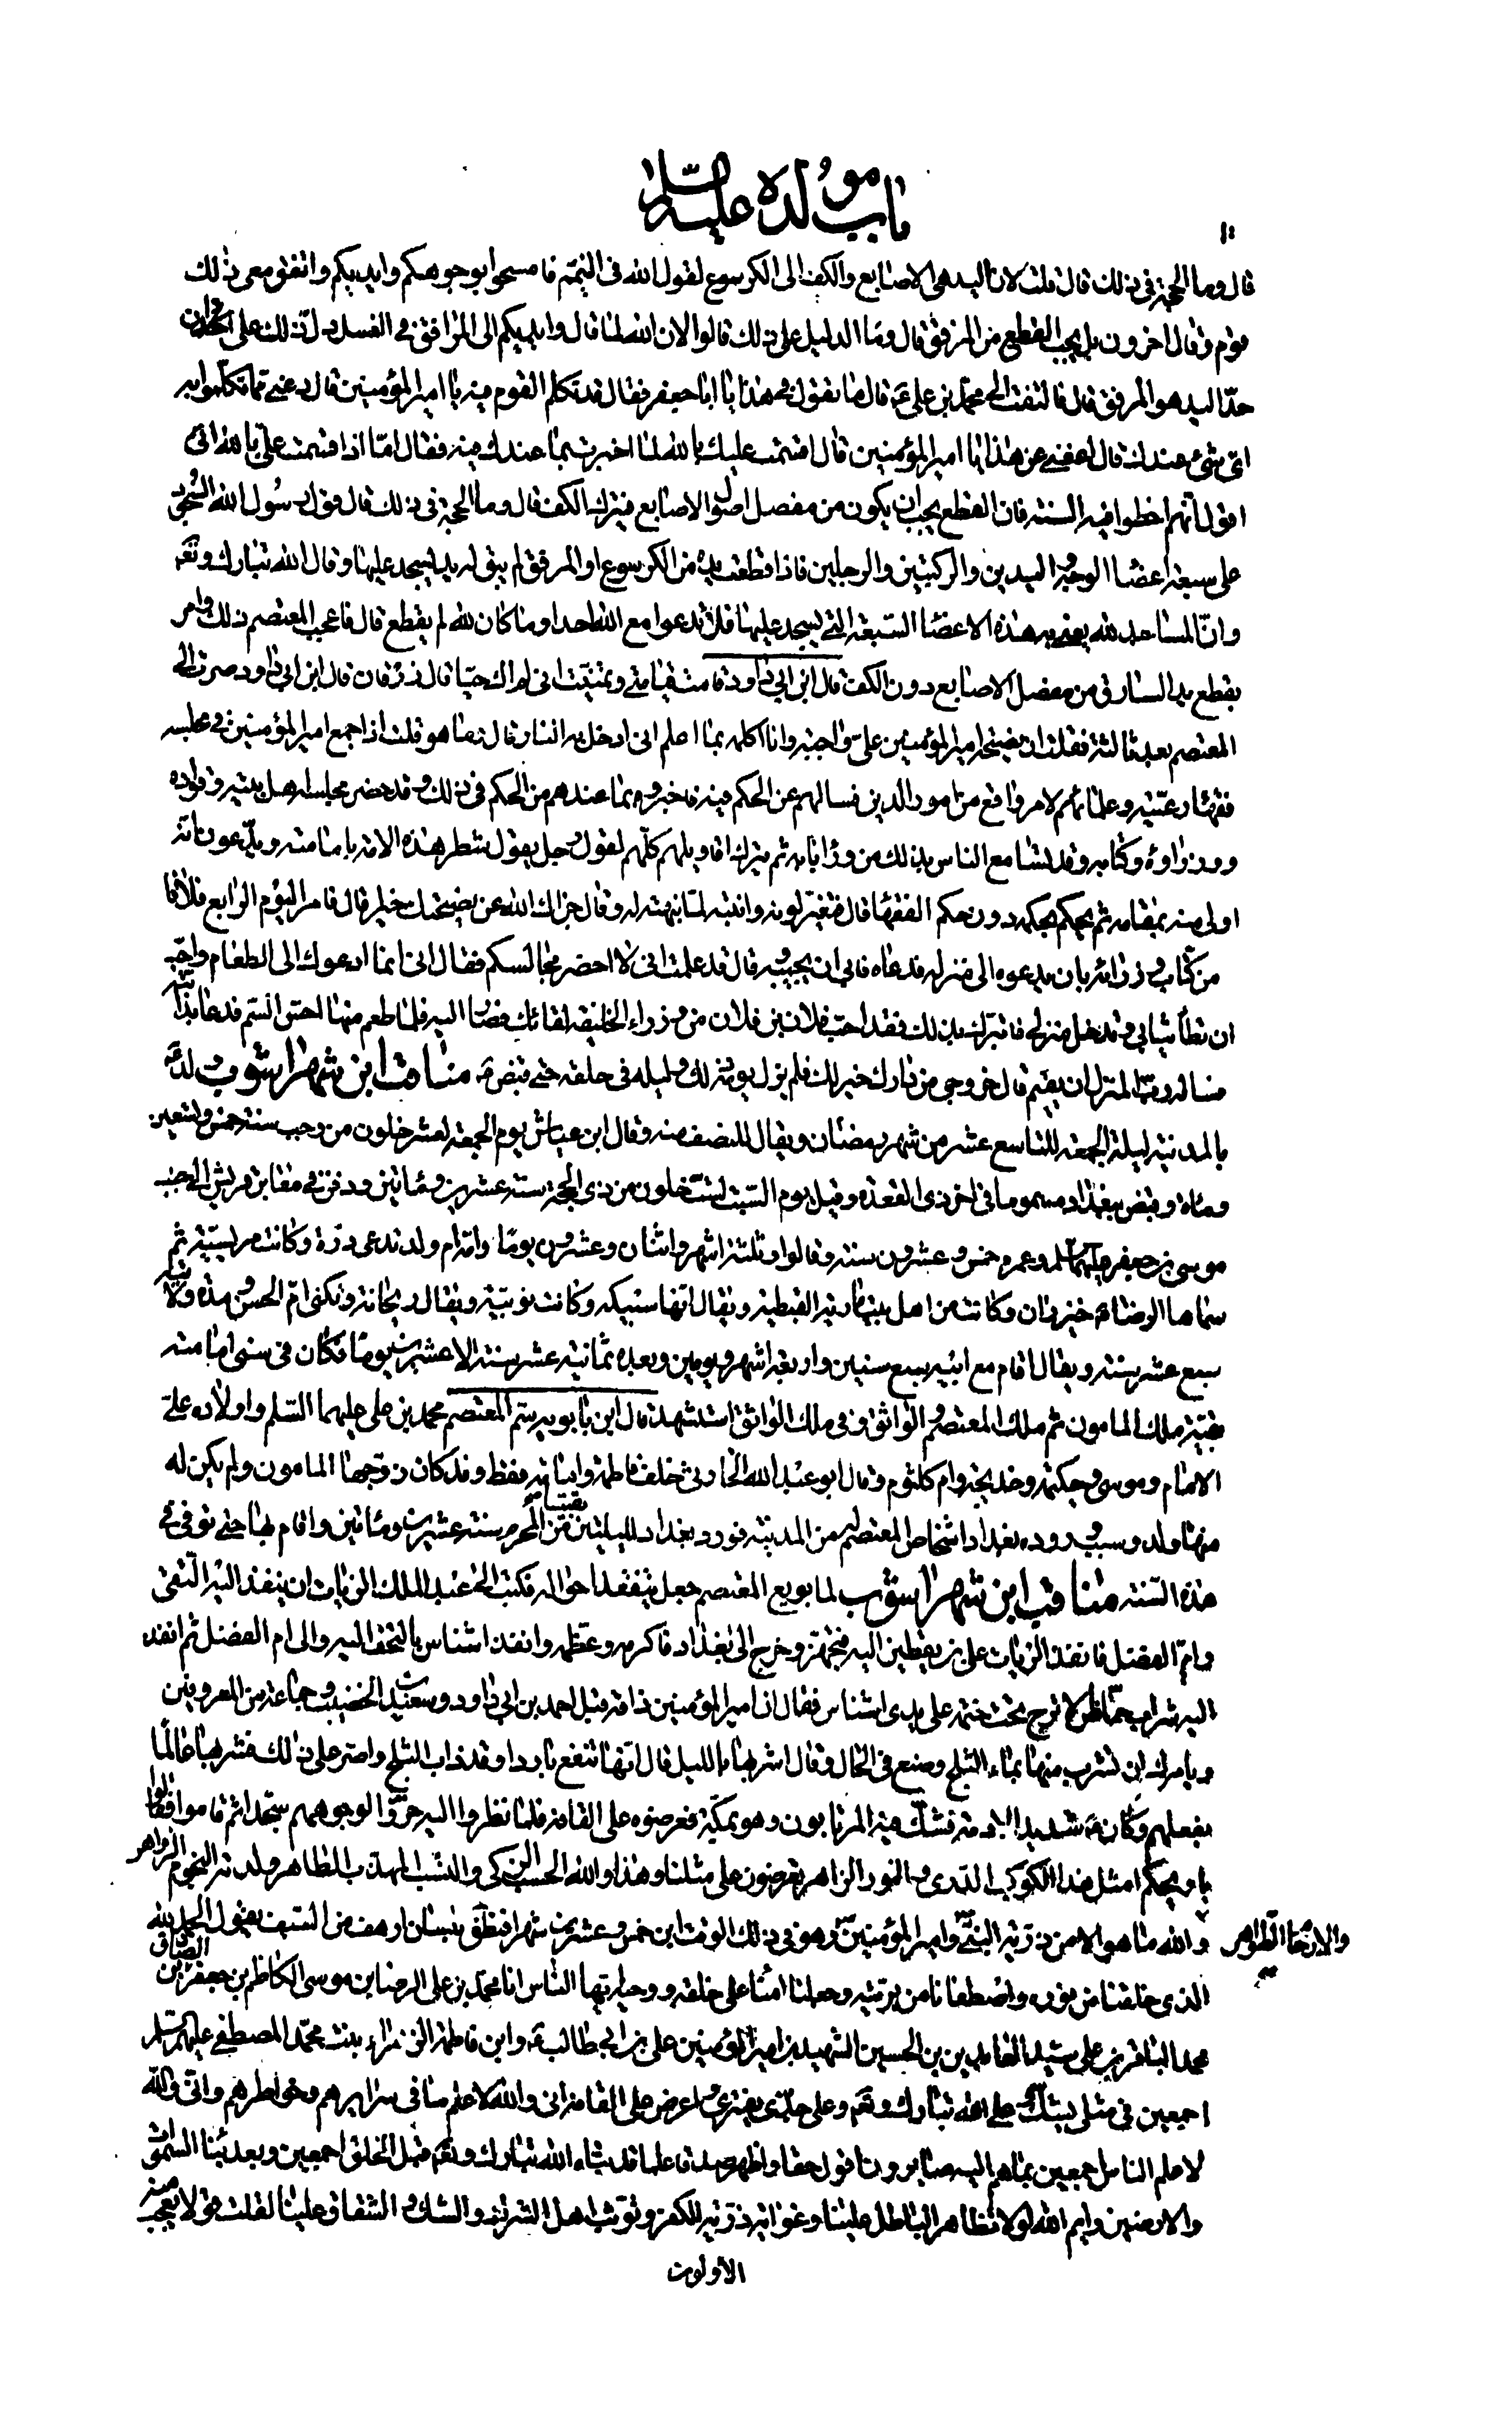 باب مولده عليه السلام
١٠
قال وما الحجة في ذلك قال قلت لان اليد هي الاصابع والكف الى الكرسوع لقول الله في التيمم فامسحوا بوجوهكم وايديكم واتفق معى ذلك
قوم وقال اخرون بل يجب القطع من المرفق قال وما الدليل على ذلك قالوا لان الله لما قال وايديكم الى المرافق في الغسل دل ذلك على ان
حد اليد هو المرفق قال فالتفت الى محمد بن على ع قال ما تقول في هذا يا ابا جعفر فقال قد تكلم القوم فيه يا امير المؤمنين قال دعنى مما تكلموا به
اى شئ عندك قال اعفنى عن هذا يا امير المؤمنين قال اقسمت عليك بالله لما اخبرت بما عندك فيه فقال اما اذا اقسمت على بالله انى
اقول انهم اخطوا فيه السنة فان القطع يجب ان يكون من مفصل اصول الاصابع فيترك الكف قال وما الحجة في ذلك قال قول رسول الله السجود
على سبعة اعضا الوجه و اليدين والركبتين والرجلين فاذا قطعت يده من الكرسوع او المرفق لم يبق له يد يسجد عليها وقال الله تبارك وتع
وان المساجد لله يعنى به هذه الاعضا السبعة التى يسجد عليها فلا تدعوا مع الله احدا وما كان لله لم يقطع قال فاعجب المعتصم ذلك وامر
بقطع يد السارق من مفصل الاصابع دون الكف قال ابن ابي داود قامت قيامتى وتمنيت انى لم اك حيا قال زرقان قال ابن ابي داود صرت الى
المعتصم بعد ثالثة فقلت ان نصيحة امير المؤمنين على واجبة وانا اكلمه بما اعلم انى ادخل به النار قال وما هو قلت اذا جمع امير المؤمنين في مجلسه
فقهاء رعيته وعلمائهم لامر واقع من امور الدين فسالهم عن الحكم فيه فاخبروه بما عندهم من الحكم في ذلك و قد حضر مجلسه اهل بيته وقواده
ووزراؤه وكتابه وقد تسامع الناس بذلك من وراء بابه ثم يترك اقاويلهم كلهم لقول رجل يقول شطر هذه الامة بامامته ويدعون انه
اولى منه بمقامه ثم يحكم بحكمه دون حكم الفقها قال فتغير لونه وانتبه لما نبهته له وقال جزاك الله عن نصيحتك خيرا قال فامر اليوم الرابع فلانا
من كتاب وزرائه بان يدعوه الى منزله فدعاه فابى ان يجيبه و قال قد علمت انى لا احضر مجالسكم فقال انى انما ادعوك الى الطعام واحب
ان تطأ ثيابي وتدخل منزلى فاتبرك بذلك فقد احب فلان بن فلان من وزراء الخليفة لقائك فصار اليه فلما طعم منها احس السم فدعا بدابته
فساله رب المنزل ان يقيم قال خروجى من دارك خير لك فلم يزل يومه ذلك و ليله في خلفه حتى قبض ع مناقب ابن شهراشوب ولد ع
بالمدينة ليلة الجمعة للتاسع عشر من شهر رمضان ويقال للنصف منه وقال ابن عياش يوم الجمعة لعشر خلون من رجب سنة خمس وتسعين
ومائة وقبض ببغداد مسموما في اخر ذى القعدة وقيل يوم السبت لست خلون من ذى الحجة سنة عشرين ومائتين ودفن في مقابر قريش الى جنب
موسى بن جعفر عليهما السلم وعمره خمس و عشرون سنة وقالوا وثلثة اشهر واثنان وعشرون يوما وامه ام ولد تدعى درة وكانت مريسية ثم
سماها الرضا ع خيزران وكانت من اهل بيت مارية القبطية ويقال انها سبيكة وكانت نوبية ويقال ريحانة وتكنى ام الحسن و مدة ولايته
سبع عشر سنة ويقال اقام مع ابيه سبع سنين واربعة اشهر ويومين وبعده ثمانية عشر سنة الا عشرين يوما فكان في سنى امامته
بقية ملك المامون ثم ملك المعتصم و الواثق وفي ملك الواثق استشهد قال ابن بابويه سم المعتصم محمد بن على عليهما السلم واولاده على
الامام وموسى وحكيمة وخديجة وام كلثوم وقال ابو عبد الله الحارثى خلف فاطمة وامامة فقط وقد كان زوجها المامون ولم يكن له
منها ولد وسبب وروده بغداد اشخاص المعتصم له من المدينة فورد بغداد لليلتين بقيتا من المحرم سنة عشرين ومائتين واقام بها حتى توفي في
هذه السنة مناقب ابن شهراشوب لما بويع المعتصم جعل يتفقد احواله فكتب الى عبد الملك الزيات ان ينفذ اليه التقى
وام الفضل فانفذ الزيات على بن يقطين اليه فتجهز وخرج الى بغداد فاكرمه وعظمه وانفذ اشناس بالتحف اليه والى ام الفضل ثم انفذ
اليه شراب حماض الاترج تحت ختمه على يدى اشناس فقال ان امير المؤمنين ذاقه قبل احمد بن ابي داود وسعيد بن الخضيب و جماعة من المعروفين
ويامرك ان تشرب منها بماء الثلج وصنع في الحال وقال اشربها بالليل قال انها تنفع باردا وقد ذاب الثلج واصر على ذلك فشربها عالما
بفعلهم وكان ع شديد الادمة فشك فيه المرتابون وهو بمكة فعرضوه على القافة فلما نظروا اليه خروا لوجوههم سجدا ثم قاموا فقالوا
يا ويحكم امثل هذا الكوكب الدرى و النور الزاهر تعرضون على مثلنا وهذا والله الحسب الزكى والنسب المهذب الطاهر ولدته النجوم الزواهر
والارحام الطواهر والله ما هو الا من ذرية النبي ص وامير المؤمنين ع وهو في ذلك الوقت ابن خمس و عشرين شهرا فنطق بلسان ارهف من السيف يقول الحمد لله
الذى خلقنا من نوره واصطفانا من بريته وجعلنا امنا على خلقه ووحيه ايها الناس انا محمد بن على الرضا بن موسى الكاظم بن جعفر الصادق بن
محمد الباقر بن على سيد العابدين بن الحسين الشهيد بن امير المؤمنين على بن ابي طالب ع وابن فاطمة الزهراء بنت محمد المصطفى عليهم السلم
اجمعين في مثلى يشك و على الله تبارك وتع وعلى جدى يفترى و اعرض على القافة انى والله لاعلم ما في سرايرهم وخواطرهم وانى والله
لاعلم الناس اجمعين بما هم اليه صايرون اقول حقا واظهر صدقا علما قد نباه الله تبارك وتع قبل الخلق اجمعين وبعد بناء السموات
والارضين وايم الله لولا تظاهر الباطل علينا وغواية ذرية الكفر وتوثب اهل الشرك والشك و الشقاق علينا لقلت قولا يعجب منه
الاولون